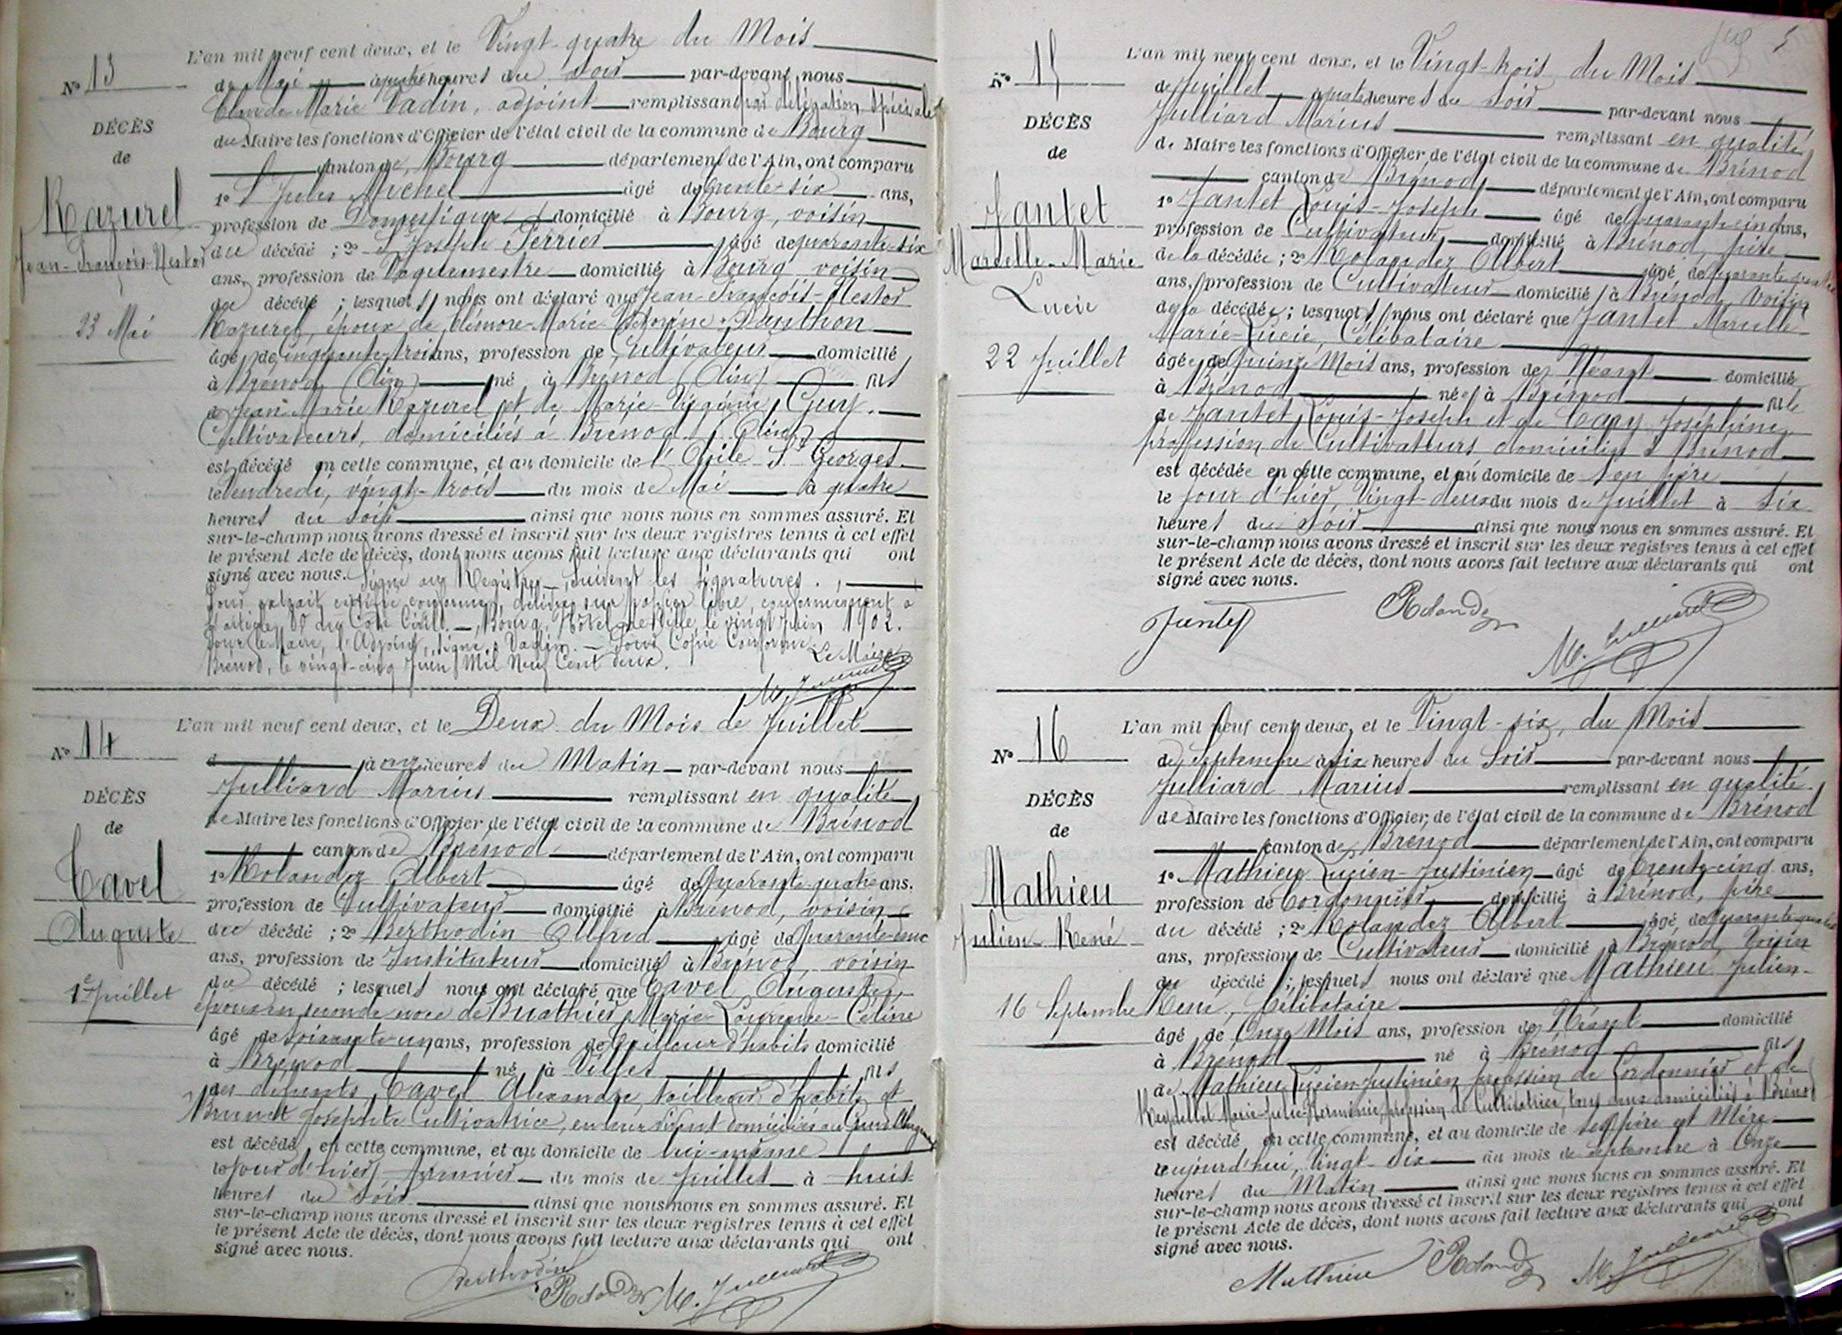 N° 13
DÉCÈS
de
Mazurel
Jean-François-Nestor
23 Mai
L'an mil neuf cent deux, et le Vingt-quatre du Mois
de Mai à quatre heures du soir par-devant nous
Claude Marie Vadin, adjoint remplissant par délégation spéciale
du Maire les fonctions d'Officier de l'état civil de la commune de Bourg
canton de Bourg département de l'Ain, ont comparu
1° Jules Michel âgé de trente-six ans,
profession de Domestique domicilié à Bourg, voisin
du décédé ; 2° Joseph Perrier âgé de quarante-six
ans, profession de Vaguemestre domicilié à Bourg voisin
du décédé ; lesquels nous ont déclaré que Jean-François-Nestor
Mazurel, époux de Marie-Victorine
âgé de cinquante-trois ans, profession de Cultivateur domicilié
à Brénod (Ain) né à Brénod (Ain) fils
de Jean-Marie Mazurel et de Marie-Virginie Guy.
Cultivateurs, domiciliés à Brénod (Ain)
est décédé en cette commune, et au domicile de l'Asile St Georges
le Vendredi, vingt-trois du mois de Mai à quatre
heures du soir ainsi que nous nous en sommes assuré. Et
sur-le-champ nous avons dressé et inscrit sur les deux registres tenus à cet effet
le présent Acte de décès, dont nous avons fait lecture aux déclarants qui ont
signé avec nous. Signé au Registre, suivent les signatures.
Pour extrait certifié conforme, délivré sur papier libre, conformément à
l'article 80 du Code Civil. Bourg, Hôtel de Ville, le vingt Juin 1902.
Pour le Maire, l'Adjoint, signé, Vadin. Pour Copie Conforme
Brénod, le vingt-cinq Juin Mil Neuf Cent deux. Le Maire
M. Julliard
N° 14
DÉCÈS
de
Tavel
Auguste
1er Juillet
L'an mil neuf cent deux, et le Deux du Mois de Juillet
à onze heures du Matin par-devant nous
Julliard Marius remplissant en qualité
de Maire les fonctions d'Officier de l'état civil de la commune de Brénod
canton de Brénod département de l'Ain, ont comparu
1° Rolandez Albert âgé de quarante-quatre ans,
profession de Cultivateur domicilié à Brénod, voisin
du décédé ; 2° Berthodin Alfred âgé de quarante-une
ans, profession de Instituteur domicilié à Brénod, voisin
du décédé ; lesquels nous ont déclaré que Tavel Auguste,
époux en seconde noce de Buathier Marie-Laurence-Celine
âgé de soixante-un ans, profession de Tailleur d'habits domicilié
à Brénod né à Villes fils
des défunts Tavel Alexandre, tailleur d'habits et
Brunet Josephte Cultivatrice, en leur vivant domiciliés au Grand Abergement
est décédé en cette commune, et au domicile de lui-même
le jour d'hier, premier du mois de Juillet à huit
heures du soir ainsi que nous nous en sommes assuré. Et
sur-le-champ nous avons dressé et inscrit sur les deux registres tenus à cet effet
le présent Acte de décès, dont nous avons fait lecture aux déclarants qui ont
signé avec nous.
Berthodin Rolandez M. Julliard
5
N° 15
DÉCÈS
de
Jantet
Marcelle-Marie
Lucie
22 Juillet
L'an mil neuf cent deux, et le Vingt-trois du Mois
de Juillet à quatre heures du soir par-devant nous
Julliard Marius remplissant en qualité
de Maire les fonctions d'Officier de l'état civil de la commune de Brénod
canton de Brénod département de l'Ain, ont comparu
1° Jantet Louis-Joseph âgé de quarante-cinq ans,
profession de Cultivateur domicilié à Brénod, père
de la décédée ; 2° Rolandez Albert âgé de quarante-quatre
ans, profession de Cultivateur domicilié à Brénod, voisin
de la décédée ; lesquels nous ont déclaré que Jantet Marcelle
Marie-Lucie, Célibataire
âgée de Quinze Mois ans, profession de Néant domicilié
à Brénod née à Brénod fille
de Jantet Louis-Joseph et de Cary Joséphine
profession de Cultivateurs domiciliés à Brénod
est décédée en cette commune, et au domicile de son père
le jour d'hier, Vingt-deux du mois de Juillet à six
heures du soir ainsi que nous nous en sommes assuré. Et
sur-le-champ nous avons dressé et inscrit sur les deux registres tenus à cet effet
le présent Acte de décès, dont nous avons fait lecture aux déclarants qui ont
signé avec nous.
Jantet Rolandez
M. Julliard
N° 16
DÉCÈS
de
Mathieu
Julien-René
16 Septembre
L'an mil neuf cent deux, et le Vingt-six, du Mois
de Septembre à six heures du Soir par-devant nous
Julliard Marius remplissant en qualité
de Maire les fonctions d'Officier de l'état civil de la commune de Brénod
canton de Brénod département de l'Ain, ont comparu
1° Mathieu Lucien-Justinien âgé de trente-cinq ans,
profession de Cordonnier domicilié à Brénod, père
du décédé ; 2° Rolandez Albert âgé de quarante-quatre
ans, profession de Cultivateur domicilié à Brénod, voisin
du décédé ; lesquels nous ont déclaré que Mathieu Julien-
René, Célibataire
âgé de Onze Mois ans, profession de Néant domicilié
à Brénod né à Brénod fils
de Mathieu Lucien-Justinien profession de Cordonnier et de
Marie-Julie-Herminie, profession de Cultivatrice, tous deux domiciliés à Brénod
est décédé en cette commune, et au domicile de ses père et Mère
aujourd'hui, Vingt-six du mois de septembre à Onze
heures du Matin ainsi que nous nous en sommes assuré. Et
sur-le-champ nous avons dressé et inscrit sur les deux registres tenus à cet effet
le présent Acte de décès, dont nous avons fait lecture aux déclarants qui ont
signé avec nous.
Mathieu Rolandez M. Julliard